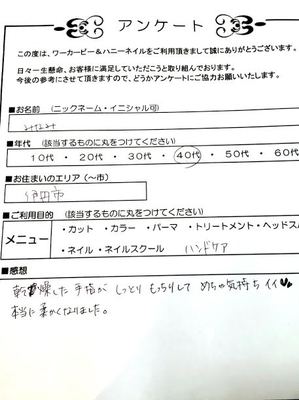 アンケート
この度は、ワーカービー&ハニーネイルをご利用頂きまして誠にありがとうございます。
日々一生懸命、お客様に満足していただこうと取り組んでおります。
今後の参考にさせて頂きますので、どうかアンケートにご協力お願いいたします。
■お名前(ニックネーム・イニシャル可)
みなみ
■年代(該当するものに丸をつけてください)
10代・20代・30代・40代・50代・60代
■お住まいのエリア(〜市)
伊丹市
■ご利用目的(該当するものに丸をつけてください)
メニュー
・カット・カラー・パーマ・トリートメント・ヘッドス
・ネイル・ネイルスクール ハンドケア
■感想
乾燥した手指が しっとり もっちりして めちゃ気持ちイイ♥
本当に柔かくなりました。